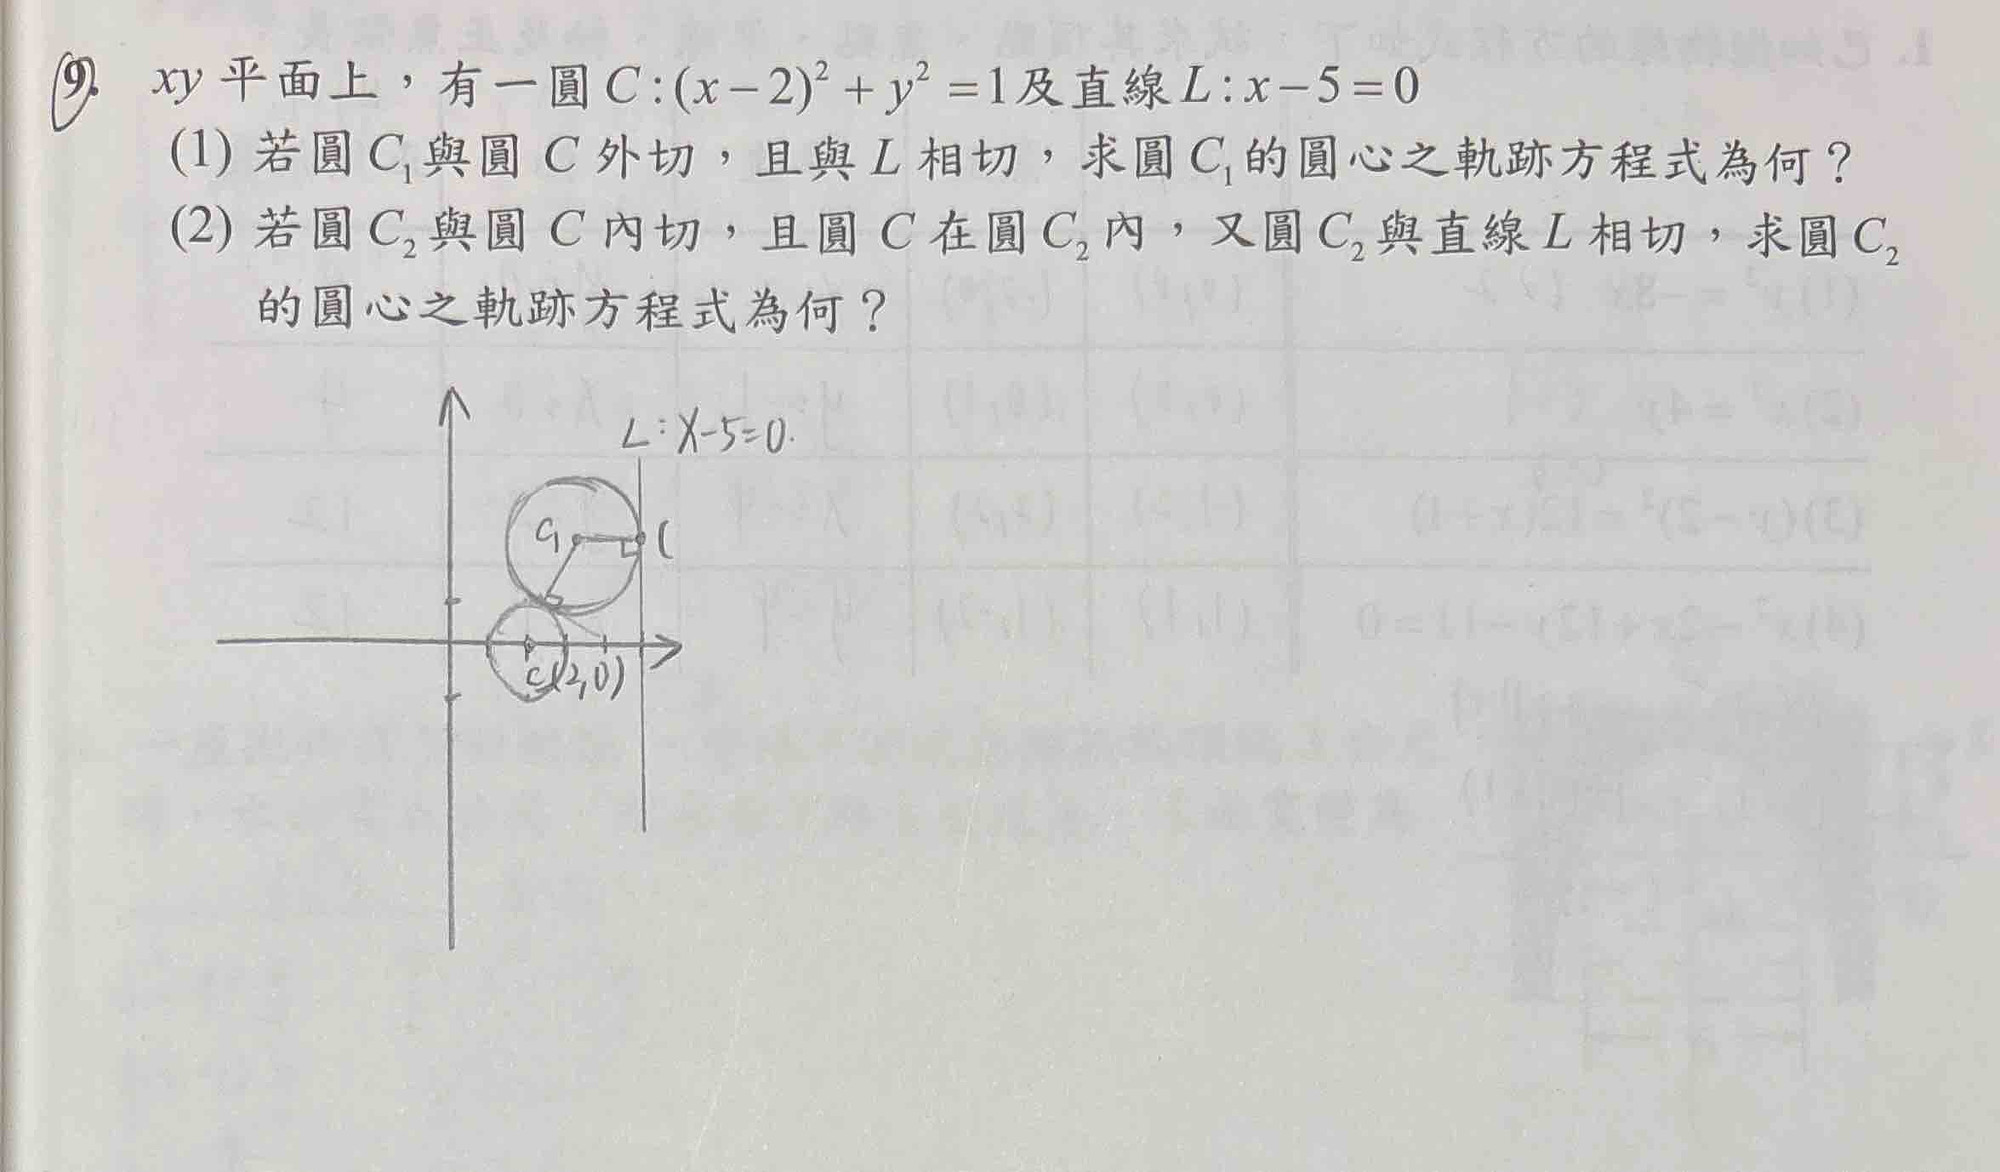 9. xy 平面上，有一圓 C:(x－2)²＋y²＝1及直線L:x－5＝0
(1) 若圓C₁與圓 C 外切，且與 L 相切，求圓C₁的圓心之軌跡方程式為何？
(2) 若圓C₂與圓 C 內切，且圓 C 在圓C₂內，又圓C₂與直線L 相切，求圓C₂
的圓心之軌跡方程式為何？
L:x-5=0.
C₁
C(2,0)